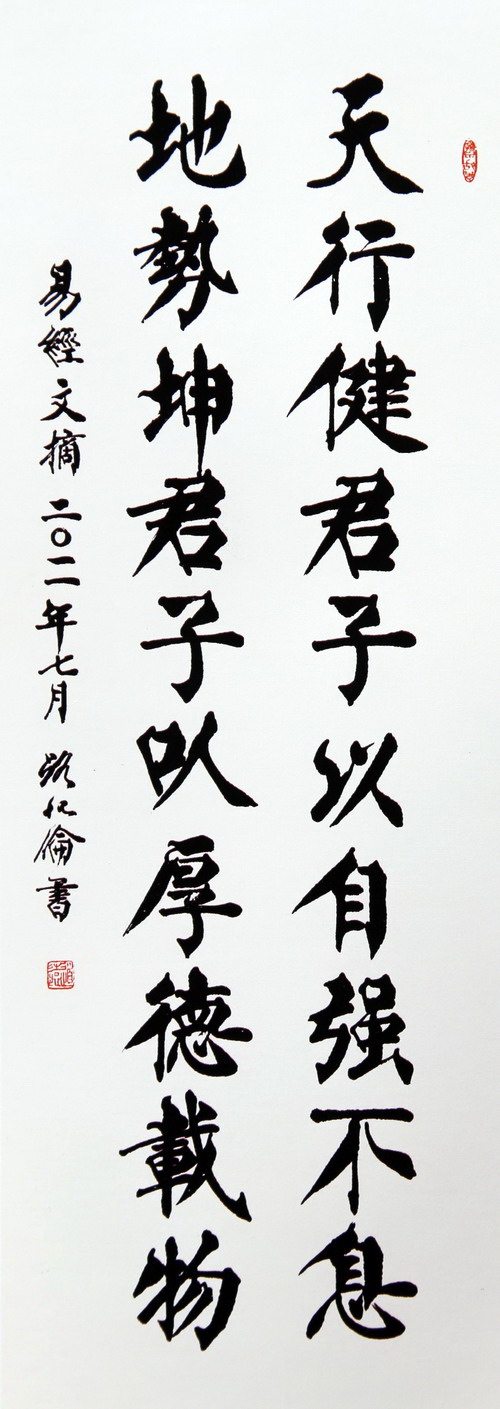 天行健君子以自强不息
地勢坤君子以厚德載物
易經文摘二〇二一年七月 路 倫書